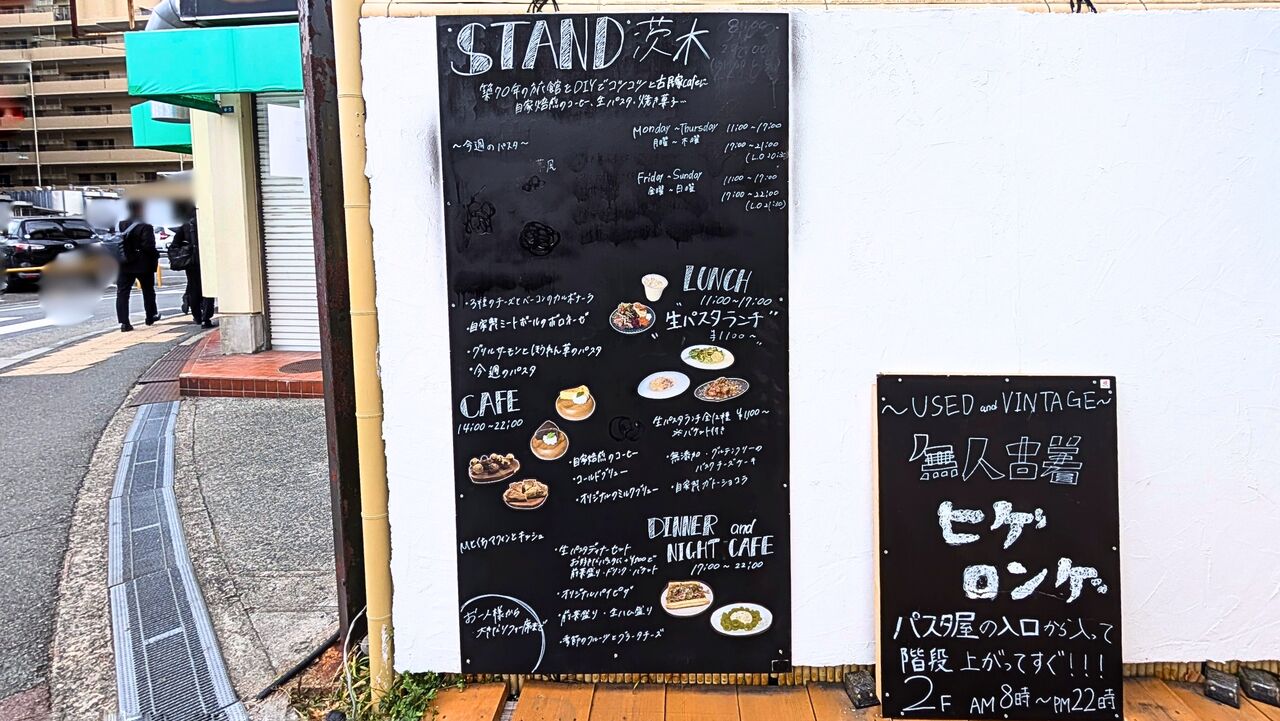 STAND 茨木
自家焙煎のコーヒー、生パスタ・焼き菓子...
~今週のパスタ~
Monday ~ Thursday 11:00~17:00
月曜~木曜 17:00~21:00
Friday ~ Sunday 11:00~17:00
金曜~日曜 17:00~22:00
LUNCH
11:00~17:00
"生パスタランチ"
¥1100~
・3種のチーズとベーコンのカルボナーラ
・自家製ミートボールのボロネーゼ
・グリルサーモンとほうれん草のパスタ
・今週のパスタ
CAFE
14:00~22:00
生パスタランチ全12種 ¥1,100~
※バケット付き
・自家焙煎のコーヒー
・コールドブリュー
・オリジナルのミルクブリュー
・無添加・グルテンフリーの
バスクチーズケーキ
・自家製ガトーショコラ
DINNER and
NIGHT CAFE
17:00~22:00
・生パスタディナーセット
前菜盛り・ドリンク・バケット
・オリジナルパイピザ
・前菜盛り・生ハム盛り
・季節のフルーツとブラータチーズ
お一人様から
~USED and VINTAGE~
無人古着
ヒゲ
ロンゲ
パスタ屋の入口から入って
階段上がってすぐ!!!
2F AM8時~PM22時